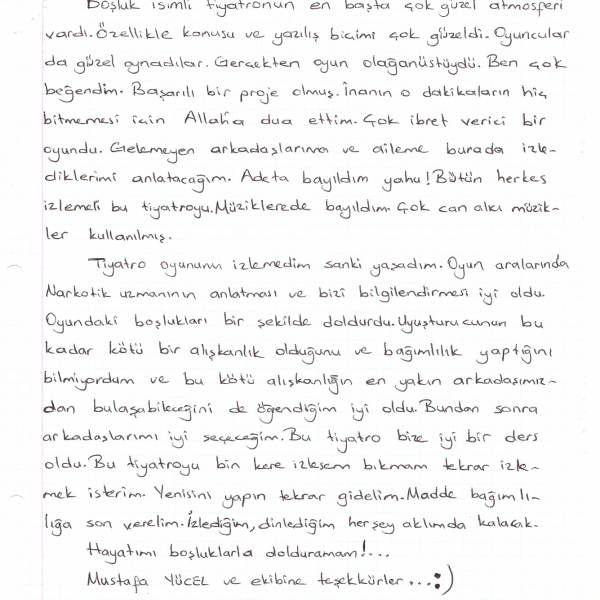 Boşluk isimli tiyatronun en başta çok güzel atmosferi
vardı. Özellikle konusu ve yazılış biçimi çok güzeldi. Oyuncular
da güzel oynadılar. Gerçekten oyun olağanüstüydü. Ben çok
beğendim. Başarılı bir proje olmuş. İnanın o dakikaların hiç
bitmemesi için Allah'a dua ettim. Çok ibret verici bir
oyundu. Gelemeyen arkadaşlarıma ve aileme burada izle-
diklerimi anlatacağım. Adeta bayıldım yahu! Bütün herkes
izlemeli bu tiyatroyu. Müziklerede bayıldım. Çok can alıcı müzik-
ler kullanılmış.
Tiyatro oyununu izlemedim sanki yaşadım. Oyun aralarında
Narkotik uzmanının anlatması ve bizi bilgilendirmesi iyi oldu.
Oyundaki boşlukları bir şekilde doldurdu. Uyuşturucunun bu
kadar kötü bir alışkanlık olduğunu ve bağımlılık yaptığını
bilmiyordum ve bu kötü alışkanlığın en yakın arkadaşımız-
dan bulaşabileceğini de öğendiğim iyi oldu. Bundan sonra
arkadaşlarımı iyi seçeceğim. Bu tiyatro bize iyi bir ders
oldu. Bu tiyatroyu bin kere izlesem bıkmam tekrar izle-
mek isterim. Yenisini yapın tekrar gidelim. Madde bağımlı-
lığa son verelim. İzlediğim, dinlediğim herşey aklımda kalacak.
Hayatımı boşluklarla dolduramam!...
Mustafa YÜCEL ve ekibine teşekkürler...:)